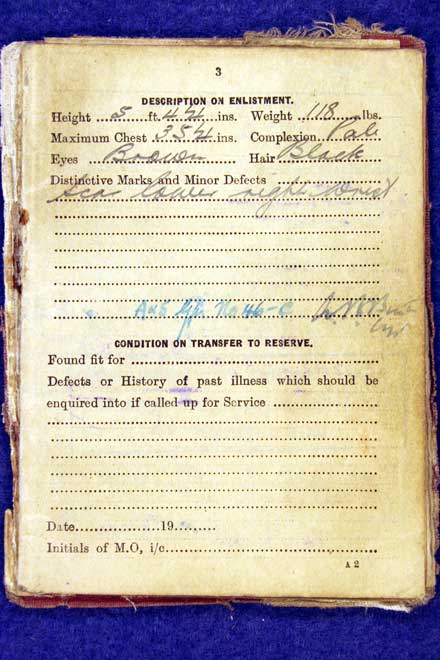 3
DESCRIPTION ON ENLISTMENT.
Height 5 ft. 4¼ ins. Weight 118 lbs.
Maximum Chest 35¼ ins. Complexion Pale
Eyes Brown Hair Black
Distinctive Marks and Minor Defects
Scar lower right wrist.
No 46-C
CONDITION ON TRANSFER TO RESERVE.
Found fit for
Defects or History of past illness which should be
enquired into if called up for Service
Date 19
Initials of M.O, i/c
A 2